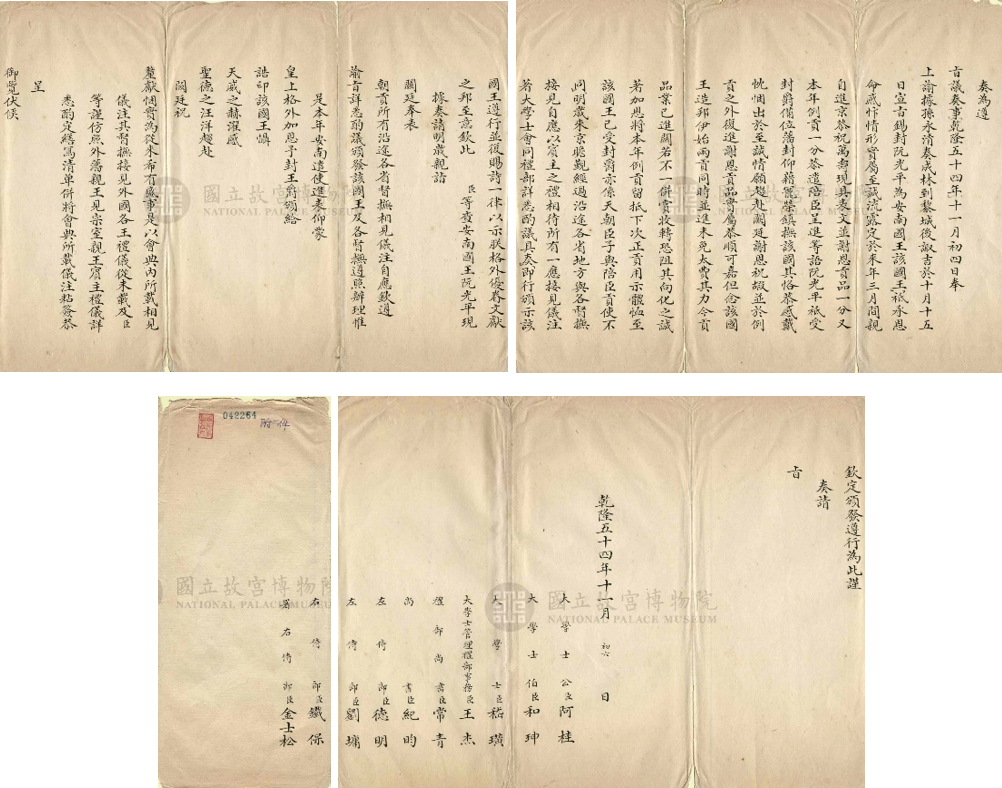 奏為遵
旨議奏事乾隆五十四年十一月初四日奉
上諭據孫永清奏成林到黎城後諏吉於十月十五
日宣旨錫封阮光平為安南國王該國王祗承恩
命感忭情形實屬至誠流露定於來年三月間親
自進京恭祝萬壽現具表文並謝恩貢品一分又
本年例貢一分恭遣陪臣呈進等語阮光平祗受
封爵備位藩封仰藉寵榮鎮撫該國其恪恭感戴
忱悃出於至誠情願趨赴闕廷謝恩祝嘏並於例
貢之外復進謝恩貢品實屬恭順可嘉但念該國
王造邦伊始兩貢同時並進未免太費其力今貢
品業已進關若不一併賞收轉恐阻其向化之誠
著加恩將本年例貢留抵下次正貢用示體恤至
該國王已受封爵亦係天朝臣子與陪臣貢使不
同明歲來京瞻覲經過沿途各省地方與各督撫
接見自應以賓主之禮相待所有一應接見儀注
著大學士會同禮部詳悉酌議具奏即行頒示該
國王遵行並復賜詩一律以示朕格外優眷文獻
之邦至意欽此 臣等查安南國王阮光平現
據奏請明歲親詣
闕廷奉表
朝貢所有沿途各省督撫相見儀注自應欽遵
諭旨詳悉酌議頒發該國王及各督撫遵照辦理惟
是本年安南遣使進表仰蒙
皇上格外加恩予封王爵頒給
誥印該國王慎
天威之赫濯感
聖德之汪洋趨赴
闕廷祝
釐獻悃實為從來希有盛事是以會典內所載相見
儀注其督撫接見外國各王禮儀從未載及臣
等謹仿照外藩親王見宗室親王賓主禮儀詳
悉酌定繕寫清單併將會典所載儀注粘簽恭
呈
御覽伏候
欽定頒發遵行為此謹
奏請
旨
乾隆五十四年十一月初六日
大學士公臣阿桂
大學士伯臣和珅
大學士臣嵇璜
大學士管理禮部事務臣王杰
禮部尚書臣常青
尚書臣紀昀
左侍郎臣德明
左侍郎臣劉墉
右侍郎臣鐵保
署右侍郎臣金士松
042264
附一件
國立故宮博物院
NATIONAL PALACE MUSEUM
國立故宮博物院
NATIONAL PALACE MUSEUM
國立故宮博物院
NATIONAL PALACE MUSEUM
國立故宮博物院
NATIONAL PALACE MUSEUM